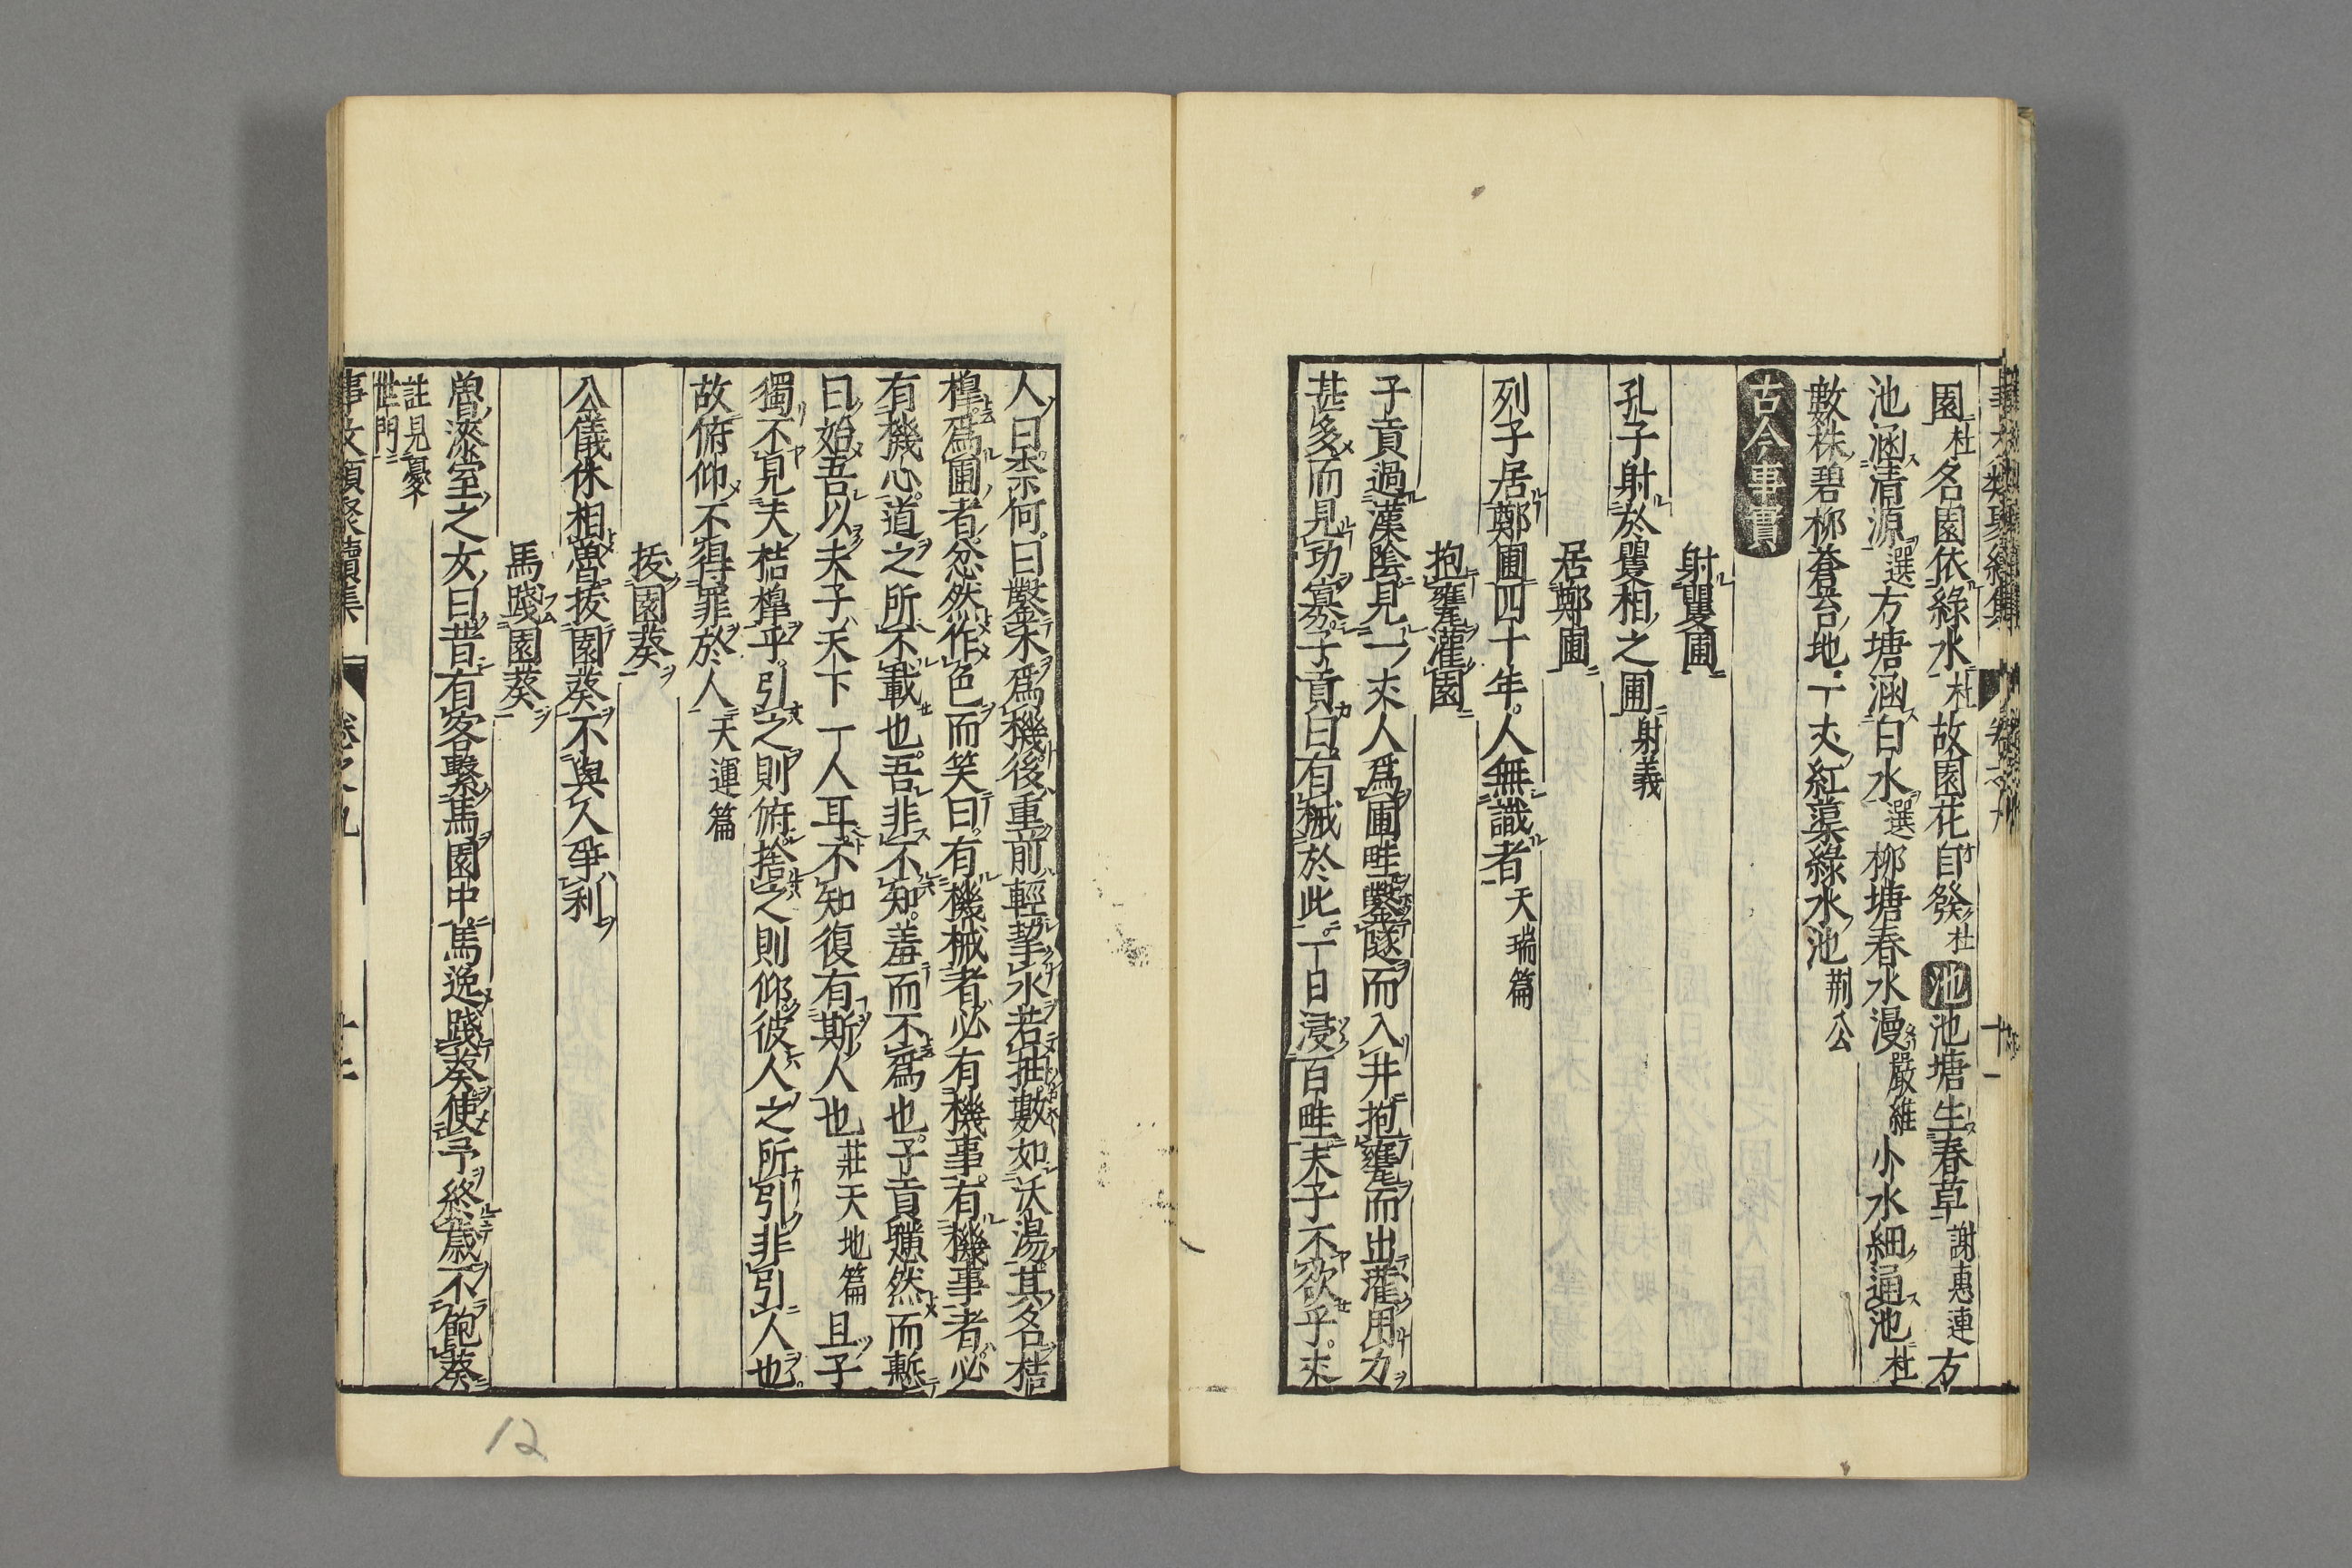 園杜名園依綠水杜故園花自發杜池池塘生春草謝惠連方
池涵清源選方塘涵白水選柳塘春水漫嚴維小水細通池杜
數株碧柳蒼苔地一丈紅蕖綠水池荆公
古今事實
射矍圃
孔子射於矍相之圃射義
居鄭圃
列子居鄭圃四十年人無識者天瑞篇
抱甕灌園
子貢過漢陰見一丈人爲圃畦鑿隧而入井抱甕而出灌用力
甚多而見功寡子貢曰有械於此一日浸百畦夫子不欲乎丈
人曰柰何曰鑿木爲機後重前輕挈水若抽數如沃湯其名桔
橰爲圃者忿然作色而笑曰有機械者必有機事有機事者必
有機心道之所不載也吾非不知羞而不爲也子貢瞞然而慙
曰始吾以夫子天下一人耳不知復有斯人也莊天地篇且子
獨不見夫桔橰乎引之則俯捨之則仰彼人之所引非引人也
故俯仰不得罪於人天運篇
拔園葵
公儀休相魯拔園葵不與人爭利
馬踐園葵
魯漆室之女曰昔有客繫馬園中馬逸踐葵使予終歲不飽葵
註見憂
世門
事文類聚續集 卷之九